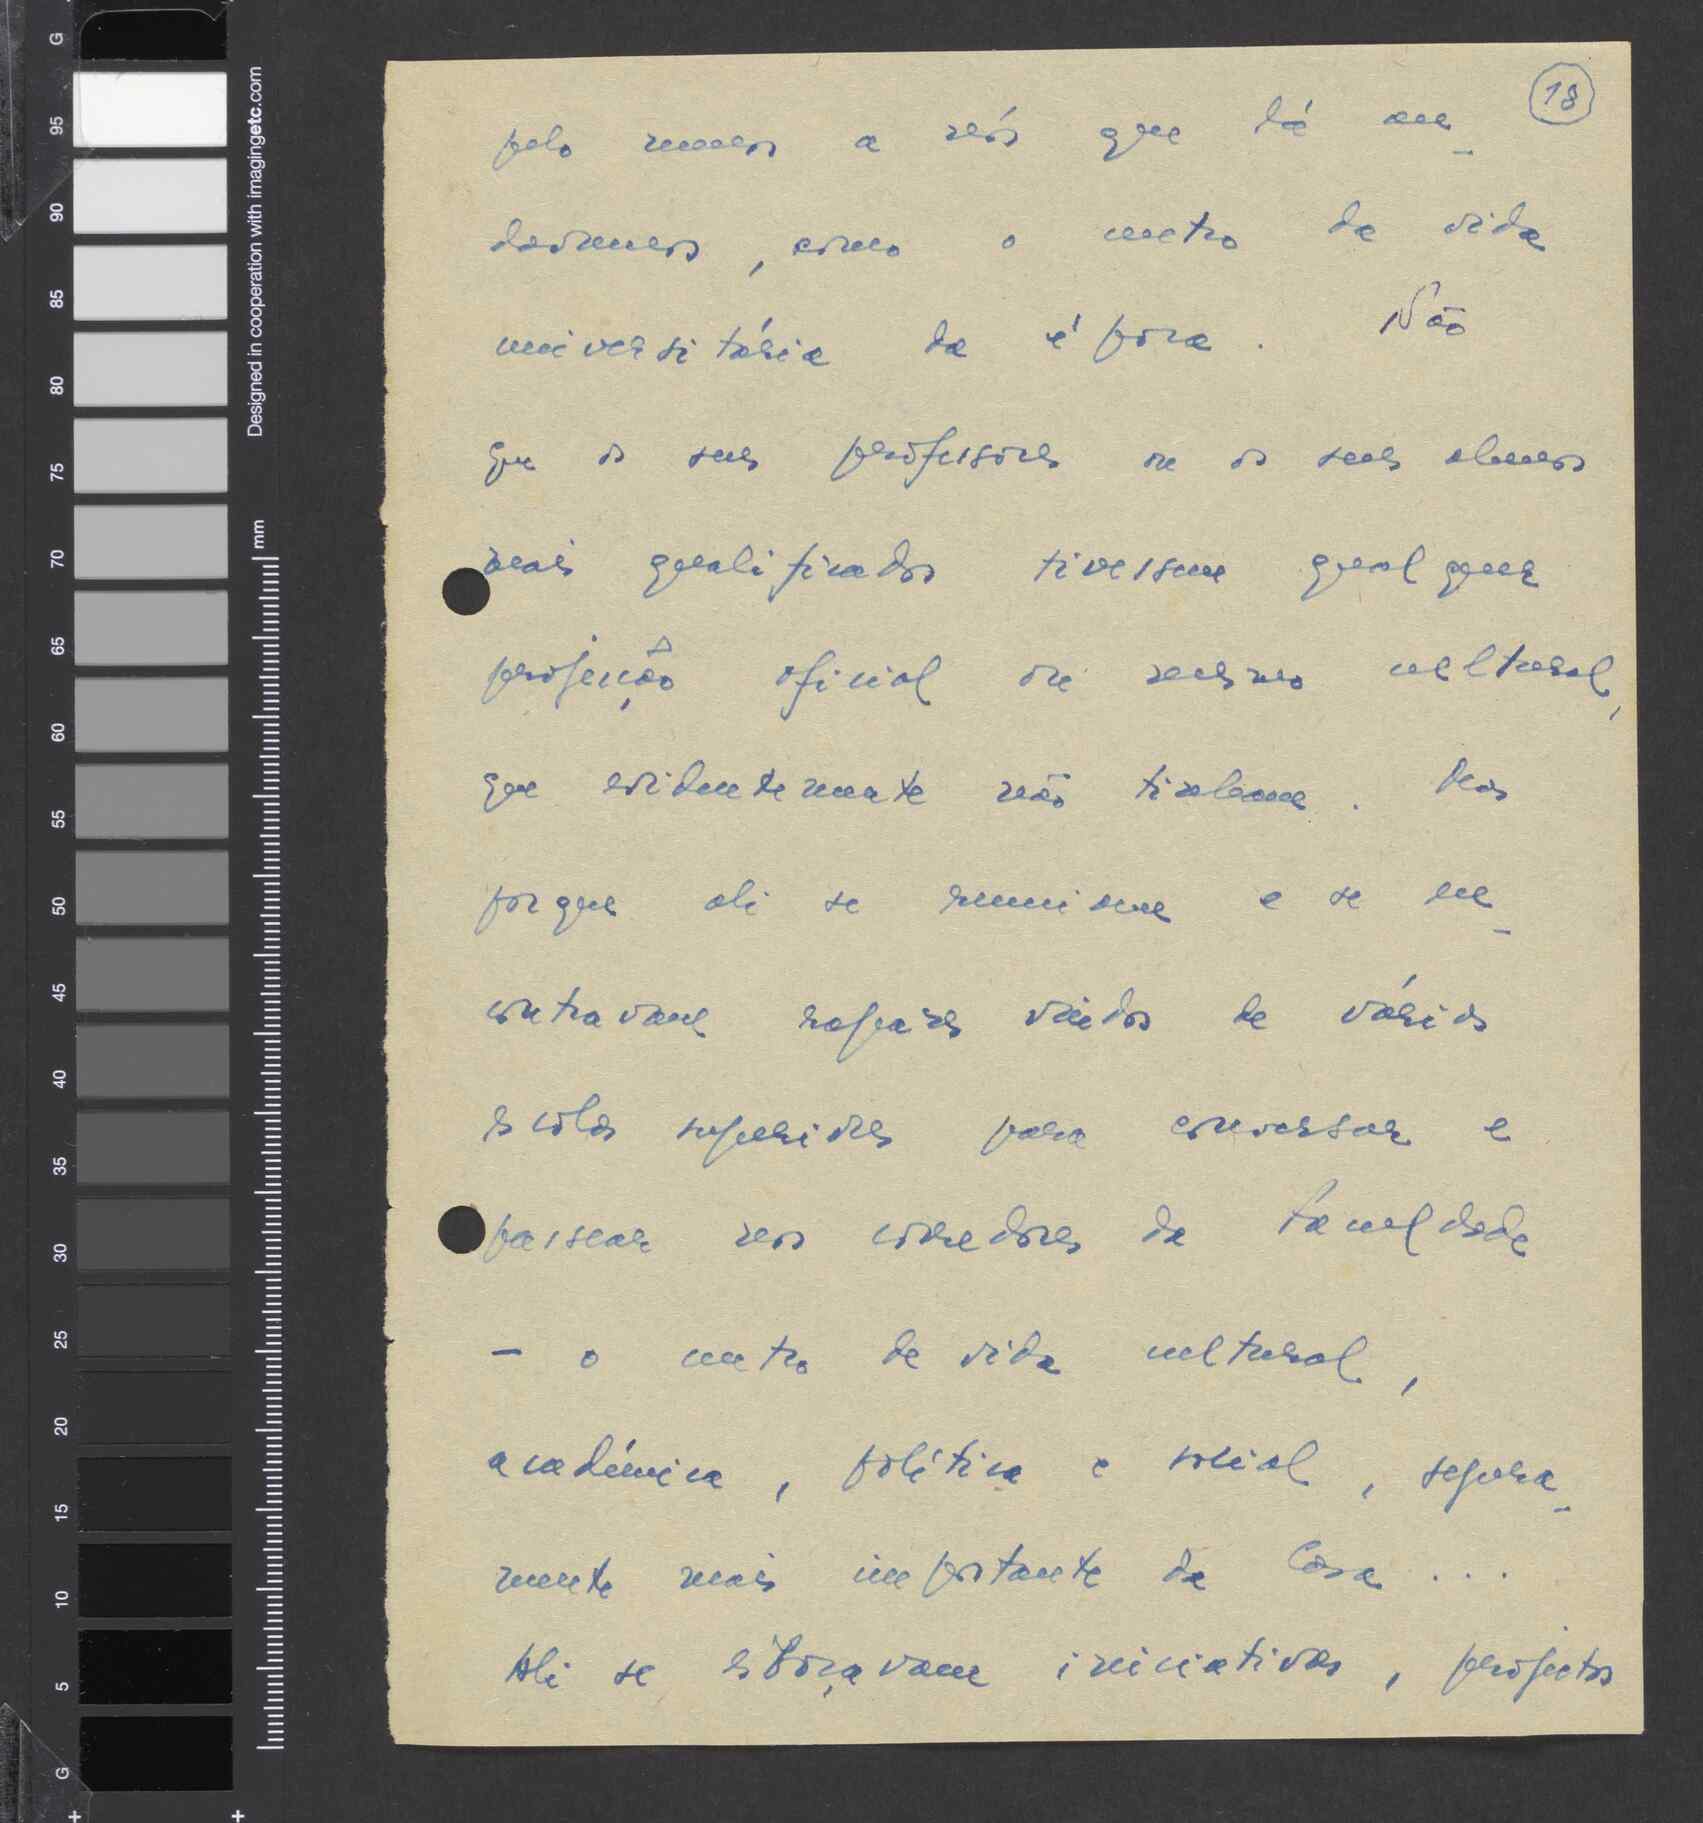 18
pelo menos a nós que lá an-
dávamos, como o centro da vida
universitária da época. Não
que os seus professores ou os seus alunos
mais qualificados tivessem qualquer
projecção oficial ou mesmo cultural,
que evidentemente não tinham. Mas
porque ali se reuniam e se en-
contravam rapazes vindos de várias
escolas superiores para conversar e
passear nos corredores da Faculdade
- o centro de vida cultural,
académica, política e social, segura-
mente mais importante da Casa...
Ali se esboçavam iniciativas, projectos
Designed in cooperation with imagingetc.com
mm
G
95
90
85
80
75
70
65
60
55
50
45
40
35
30
25
20
15
10
5
G